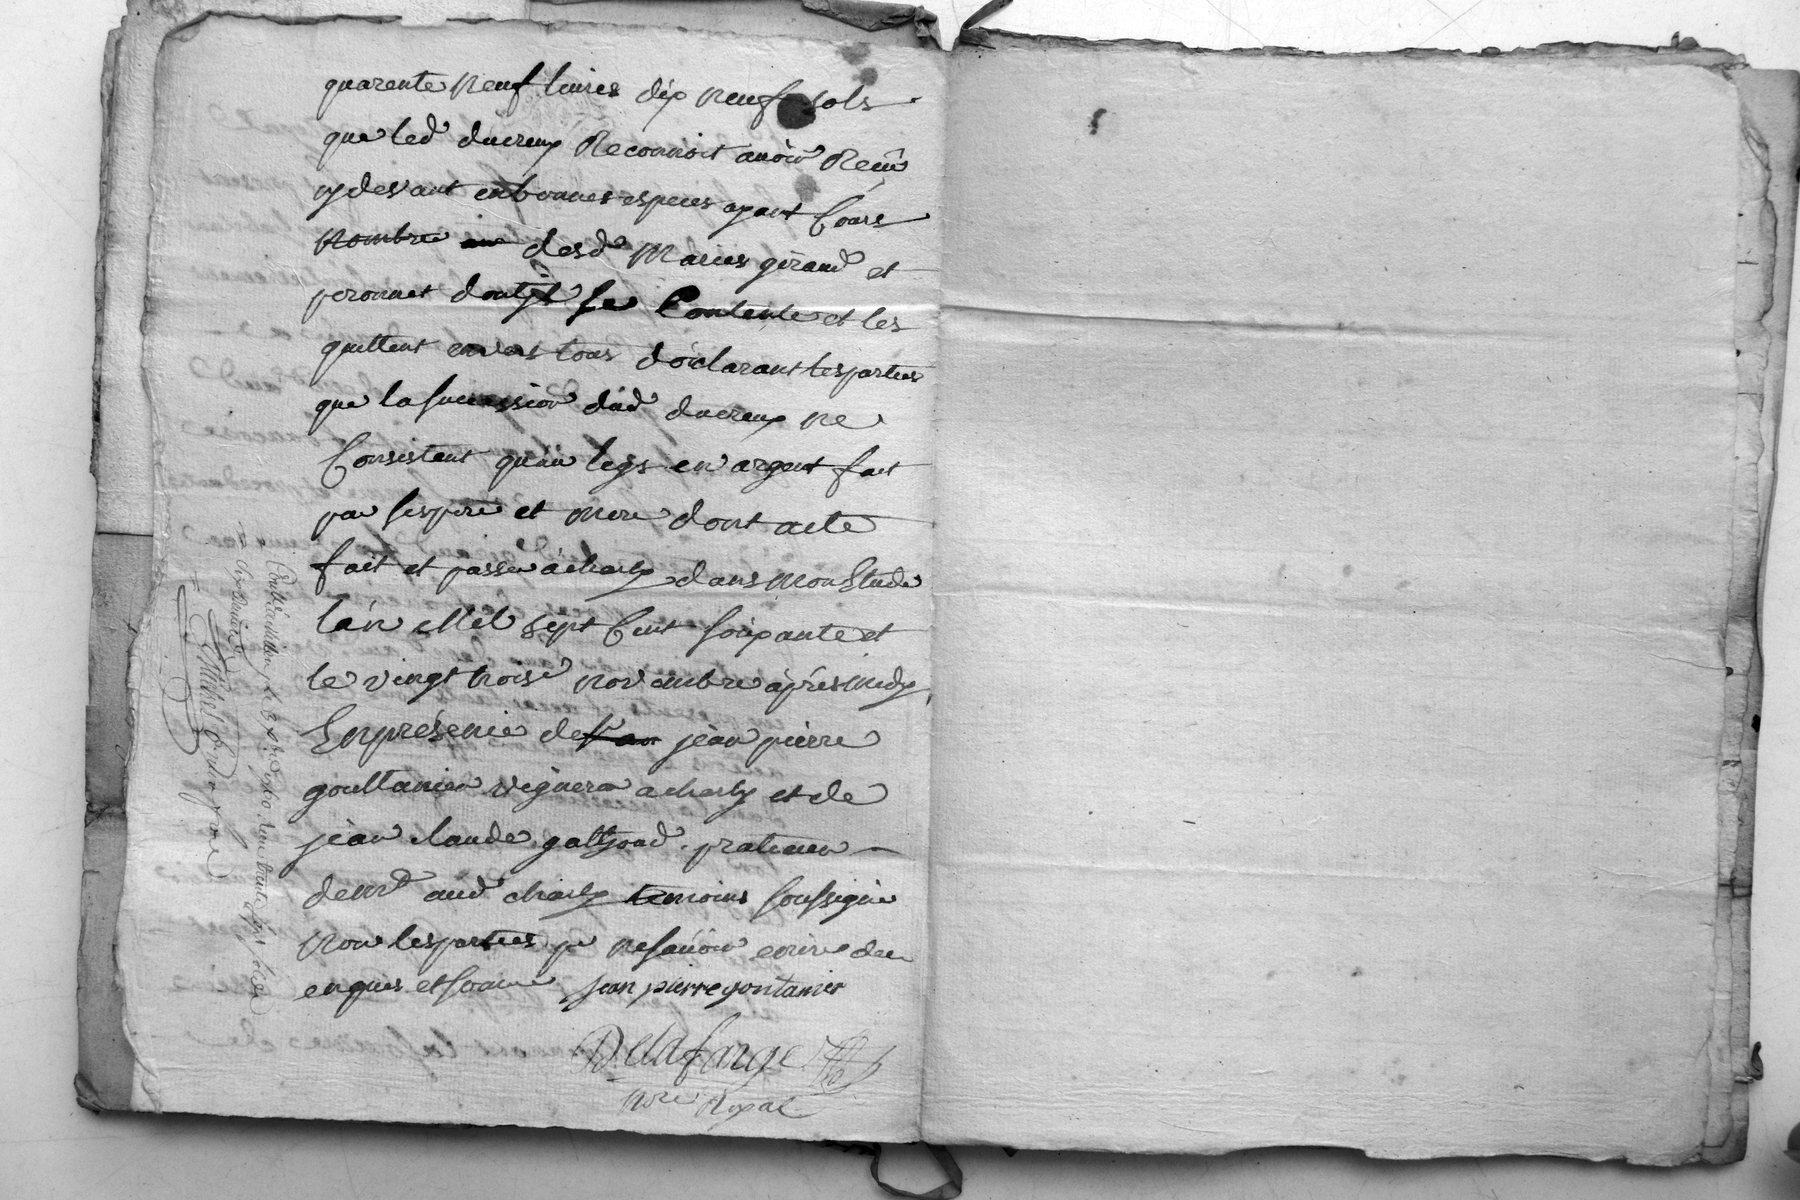 quarente neuf liures dix neuf sols
que led ducreux Reconnoit auoir Receu
cy devant en bonnes especes ayant Cours
nombrée desd Maries geraud et
peronnet dont il se Contente et les
quittent envers tous déclarant les parties
que la succession dud ducreux ne
Consistent qu'au legs en argent fait
par ses pere et mere dont acte
fait et passé a charly dans mon Etude
l'an Mil sept Cent soixante et
le vingt trois novembre après midy
En présence de jean pierre
gouttanier vigneron a charly et de
jean claude praticien
demt aud charly temoins soussigné
non les parties p ne sauoir ecrire de ce
enquis et jean pierre gontanier
Delafarge
nore Royal